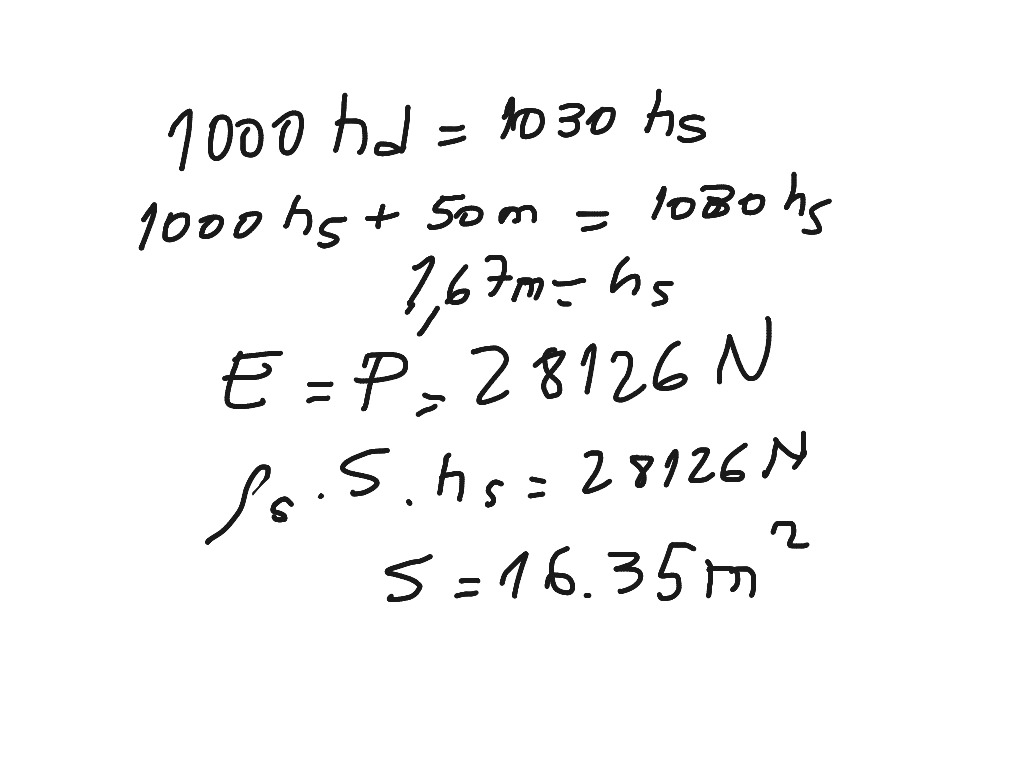 1000 hd = 1030 hs
1000 hs + 50 m = 1030 hs
1,67m = hs
E = P = 28126 N
ρs . S . hs = 28126 N
S = 16.35 m²